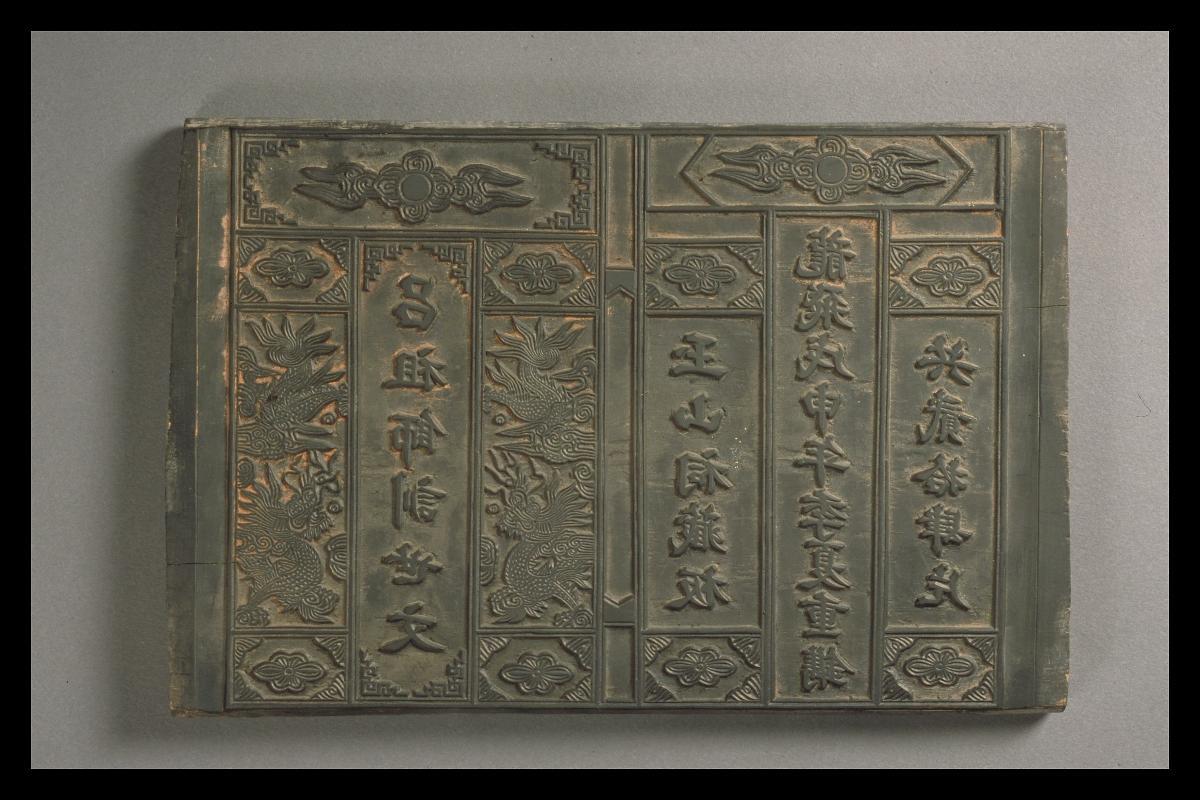 呂祖師訓世文
玉山祠藏板
龍飛戊申年季夏重鐫
共貳拾肆片